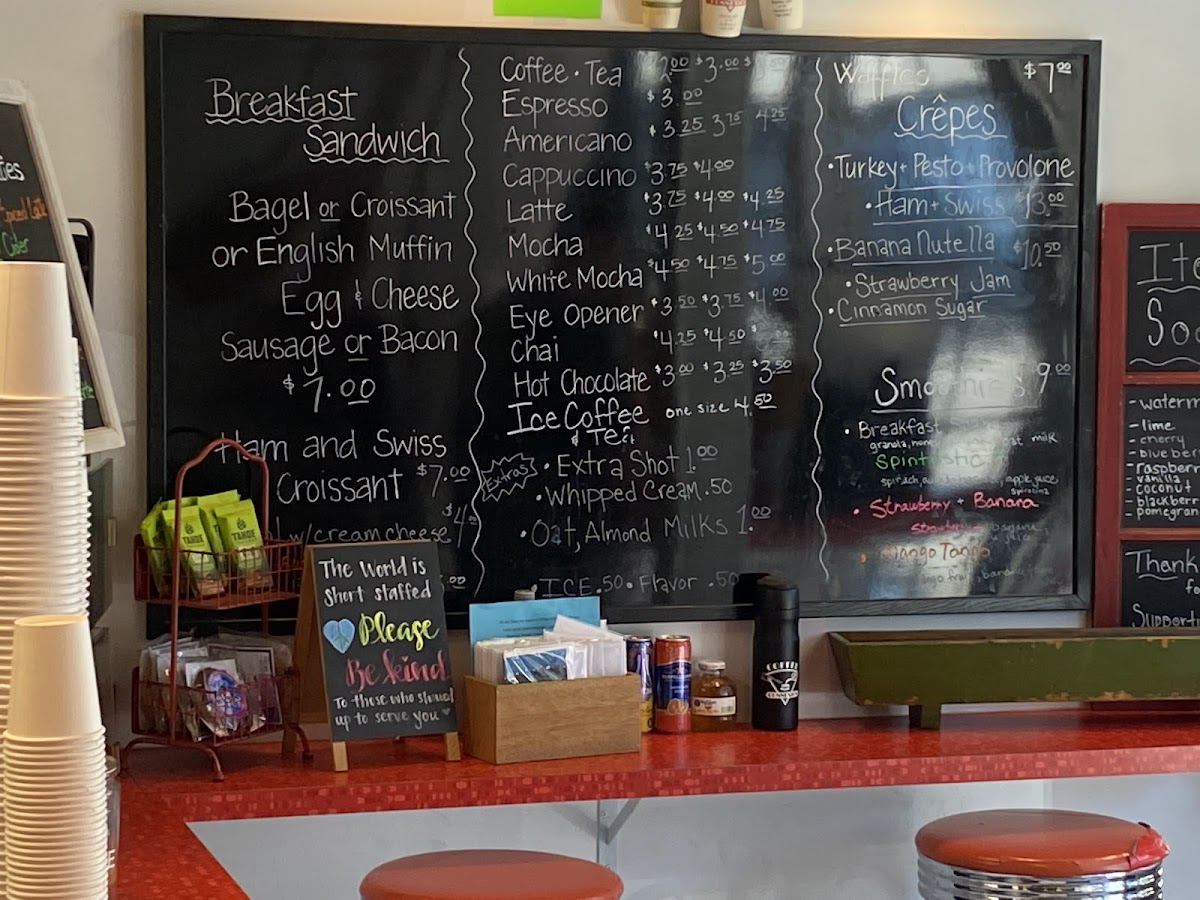 Breakfast
Sandwich
Bagel or Croissant
or English Muffin
Egg & Cheese
Sausage or Bacon
$7.00
Ham and Swiss
Croissant $7.00
w/creamcheese $4
.00
Coffee · Tea $3.00
Espresso $3.00
Americano $3.25 3.75 4.25
Cappuccino $3.75 $4.00
Latte $3.75 $4.00 $4.25
Mocha $4.25 $4.50 $4.75
White Mocha $4.50 $4.75 $5.00
Eye Opener $3.50 $3.75 $4.00
Chai $4.25 $4.50
Hot Chocolate $3.00 $3.25 $3.50
Ice Coffee one size 4.50
& Tea
Extras
· Extra Shot 1.00
· Whipped Cream .50
· Oat, Almond Milks 1.00
· ICE .50 · Flavor .50
Waffles $7.00
Crêpes
· Turkey + Pesto + Provolone
· Ham + Swiss $13.00
· Banana Nutella $10.50
· Strawberry Jam
· Cinnamon Sugar
Smoothies $9.00
· Breakfast
granola, oat milk
Spintastic
spinach, apple juice
spirulina
· Strawberry + Banana
· Mango Tango
The World is
Short staffed
Please
Be kind
To those who showed
up to serve you
TAHOE
COFFEE
Ite
So
- waterm
- lime
- cherry
- blueber
- raspberr
- vanilla
- coconut
- blackberr
- pomegran
Thank
fo
Support
ies
Cider